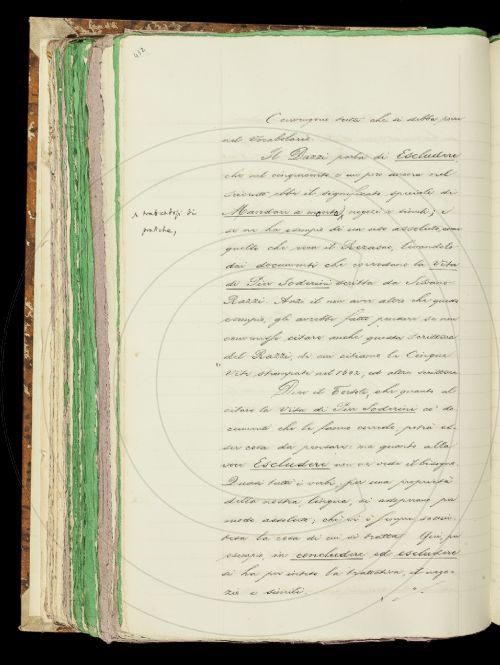 412
Convengono tutti che si debba porre
nel Vocabolario.
Il Dazzi parla di Escludere
che nel cinquecento e un po' ancora nel
seicento ebbe il significato speciale di
Mandare a monte, negozi e simili; e
trattandosi di
pratiche,
se ne ha esempi di un uso assoluto, come
quello che reca il Rezasco, levandolo
dai documenti che corredano la Vita
di Pier Soderini scritta da Silvano
Razzi. Anzi il non aver altro che questo
esempio, gli avrebbe fatto pensare se non
convenisse citare anche questa scrittura
del Razzi, di cui citiamo le Cinque
Vite stampate nel 1602, ed altre scritture.
Dice il Tortoli, che quanto al
citare la Vita di Pier Soderini co' do-
cumenti che le fanno corredo, potrà es-
ser cosa da pensarci: ma quanto alla
voce Escludere non ne vede il bisogno.
Quasi tutti i verbi, per una proprietà
della nostra lingua, si adoprano per
modo assoluto; chè vi è sempre sottin-
tesa la cosa di cui si tratta. Qui per
esempio in concludere ed escludere
si ha per intesa la trattativa, il nego-
zio e simili.